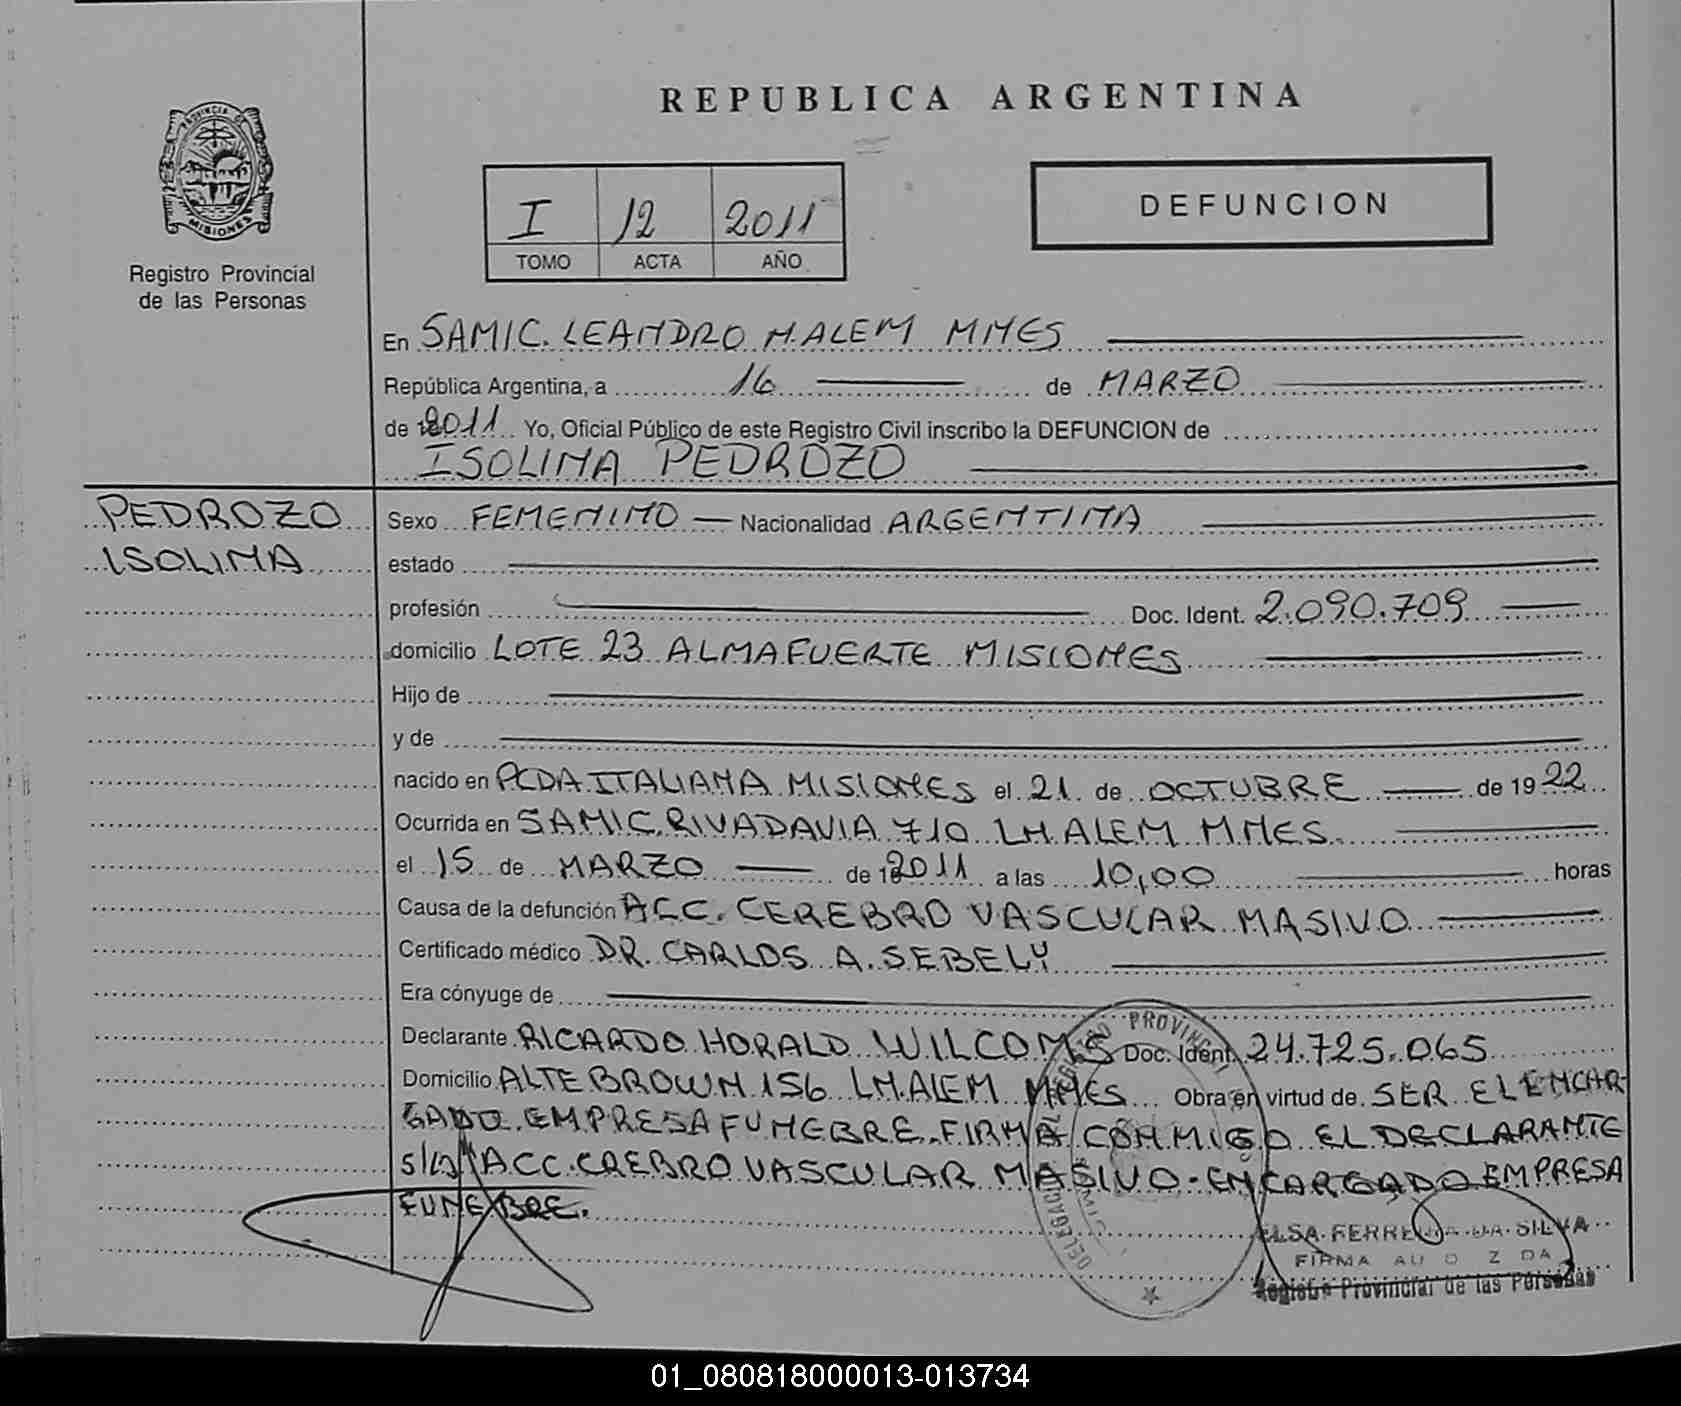 REPUBLICA ARGENTINA
PROVINCIA DE MISIONES
Registro Provincial
de las Personas
I 12 2011
TOMO ACTA AÑO
DEFUNCION
En SAMIC. LEANDRO N. ALEM MNES
República Argentina, a 16 de MARZO
de 2011 Yo, Oficial Público de este Registro Civil inscribo la DEFUNCION de
ISOLINA PEDROZO
PEDROZO
ISOLINA
Sexo FEMENINO — Nacionalidad ARGENTINA
estado
profesión Doc. Ident. 2.090.709
domicilio LOTE 23 ALMAFUERTE MISIONES
Hijo de
y de
nacido en PCDA ITALIANA MISIONES el 21 de OCTUBRE de 1922
Ocurrida en SAMIC. RIVADAVIA 710 LN. ALEM MNES.
el 15 de MARZO de 2011 a las 10,00 horas
Causa de la defunción ACC. CEREBRO VASCULAR MASIVO
Certificado médico DR. CARLOS A. SEBELY
Era cónyuge de
Declarante RICARDO HORALD WILCOMS Doc. Ident. 24.725.065
Domicilio ALTE BROWN 156 LN. ALEM MNES Obra en virtud de SER EL ENCAR-
GADO EMPRESA FUNEBRE. FIRMA CONMIGO EL DECLARANTE
ACC. CREBRO VASCULAR MASIVO - ENCARGADO EMPRESA
FUNEBRE.
ELSA FERREIRA DA SILVA
FIRMA AUTORIZADA
Registro Provincial de las Personas
01_080818000013-013734